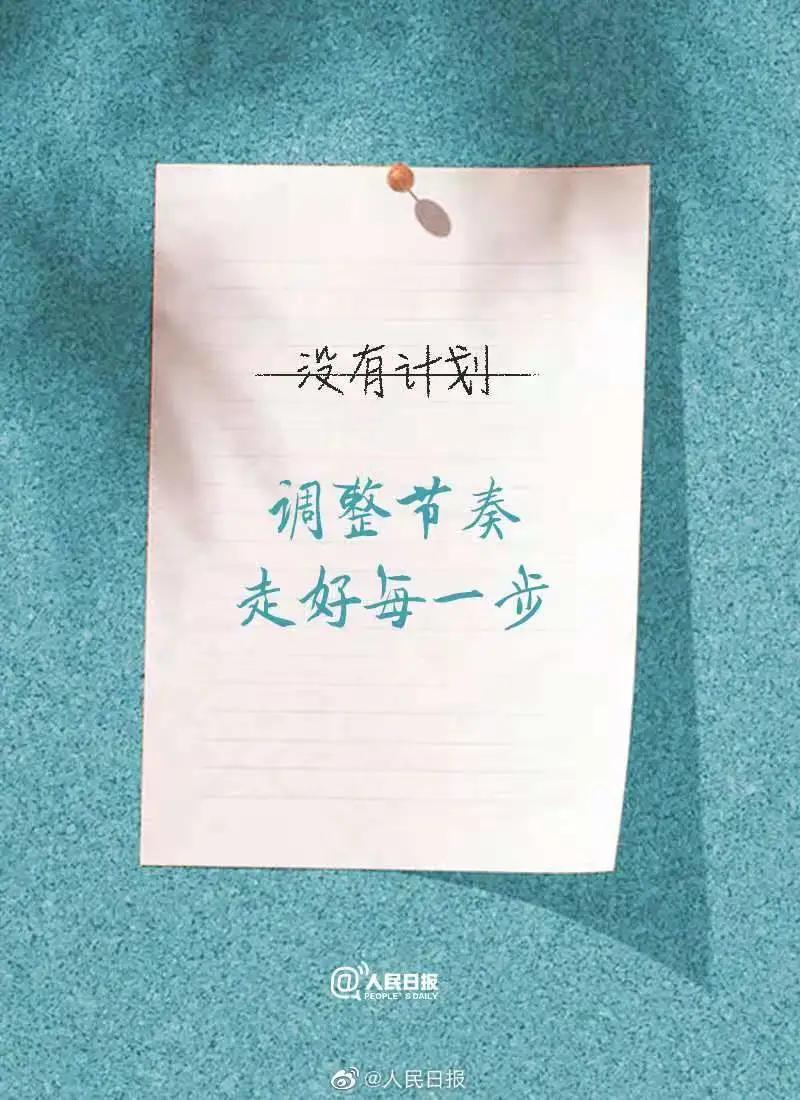 没有计划
调整节奏
走好每一步
@人民日报
PEOPLE'S DAILY
@人民日报